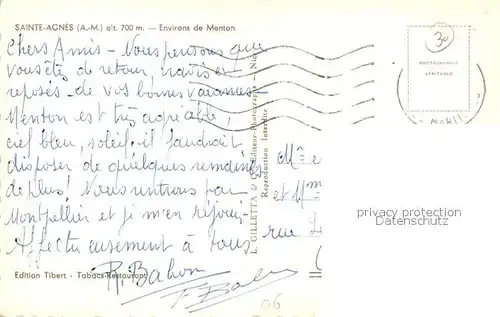 SAINTE-AGNÈS (A.-M.) alt. 700 m. — Environs de Menton
Chers Amis - Nous pensons que
vous êtes de retour, ravis et
reposés - de vos bonnes vacances -
Menton est très agréable,
ciel bleu, soleil. il faudrait
disposer de quelques semaines
de plus! Nous rentrons par
Montpellier et je m'en réjouis.
Affectueusement à tous
R. Bahon
F. Bahon
Edition Tibert - Tabacs-Restaurant
L. GILLETTA & Editeur-Photographe - Nice
Reproduction Interdite
30
PHOTOGRAPHIE
VÉRITABLE
Mr et
et Mme
rue
privacy protection
Datenschutz
06